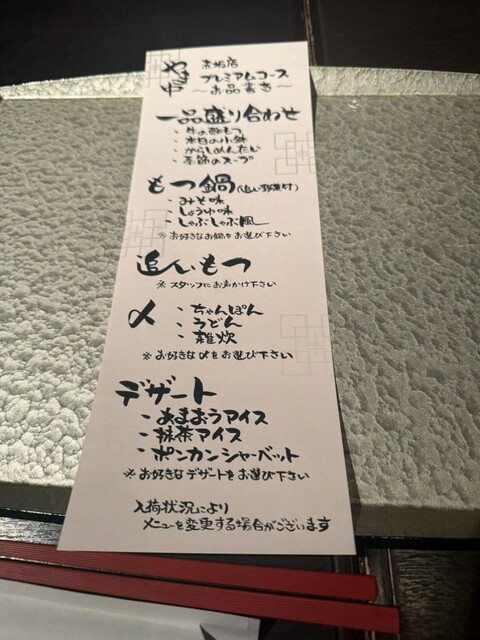 やま中 赤坂店
プレミアムコース
～お品書き～
一品盛り合わせ
・牛の酢もつ
・本日の小鉢
・からしめんたい
・季節のスープ
もつ鍋(追い野菜付)
・みそ味
・しょうゆ味
・しゃぶしゃぶ風
※お好きなお鍋をお選び下さい
追いもつ
※スタッフにお声かけ下さい
〆
・ちゃんぽん
・うどん
・雑炊
※お好きな〆をお選び下さい
デザート
・あまおうアイス
・抹茶アイス
・ポンカンシャーベット
※お好きなデザートをお選び下さい
入荷状況により
メニューを変更する場合がございます